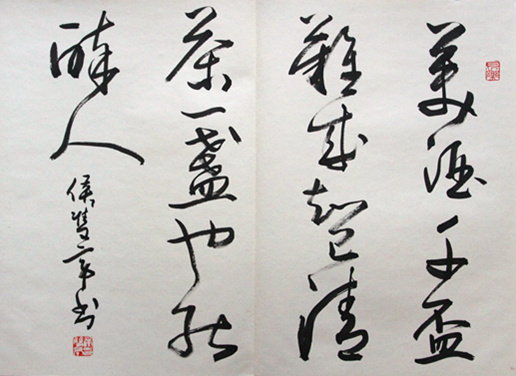 美酒千盃
難成知己清
茶一盞也能
醉人